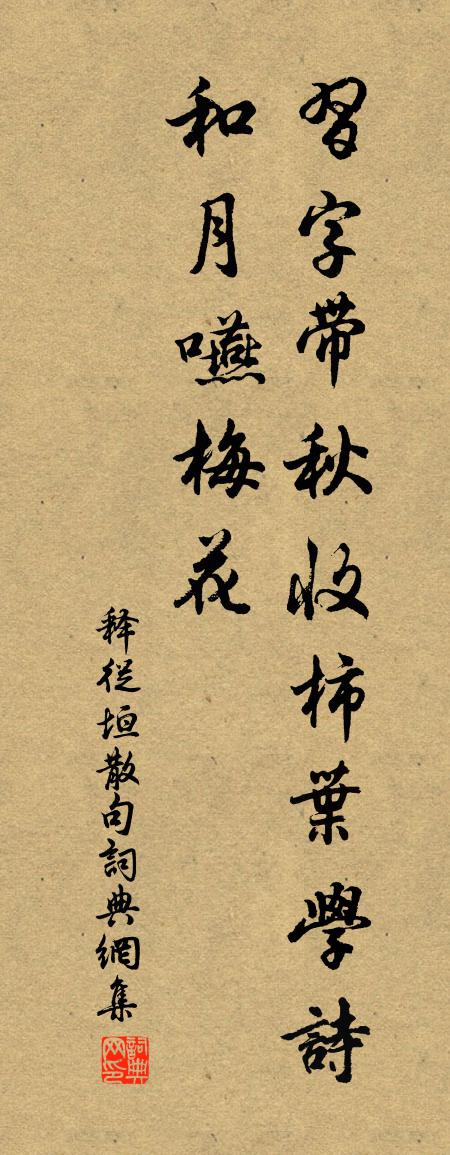 習字帶秋收柿葉學詩
和月嚥梅花
释從垣散句詞典網集
詞典网印